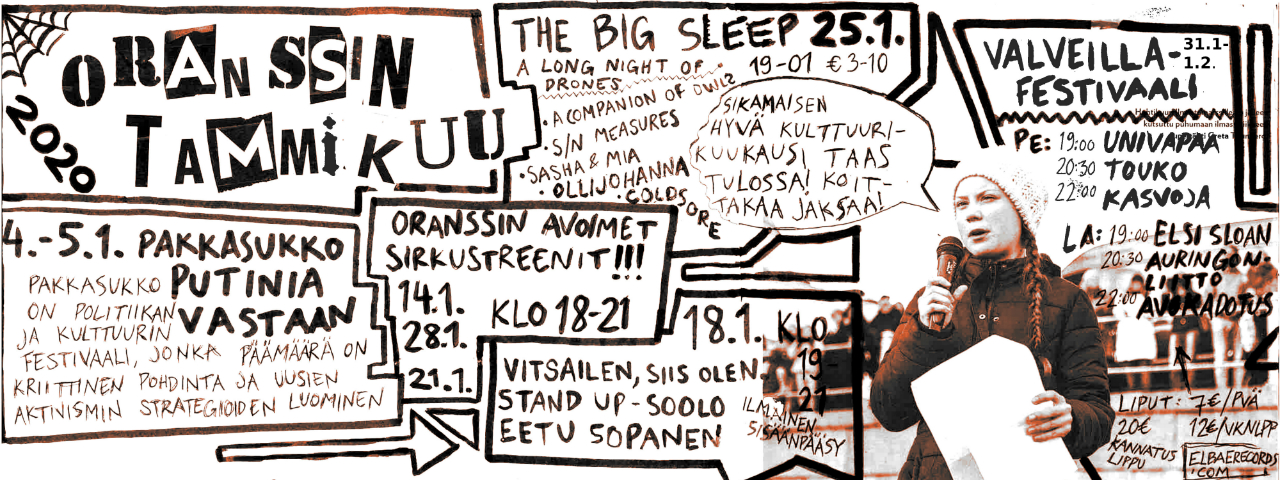 ORANSSIN
TAMMIKUU
2020
4.-5.1. PAKKASUKKO
PUTINIA
VASTAAN
PAKKASUKKO
ON POLITIIKAN
JA KULTTUURIN
FESTIVAALI, JONKA PÄÄMÄÄRÄ ON
KRIITTINEN POHDINTA JA UUSIEN
AKTIVISMIN STRATEGIOIDEN LUOMINEN
THE BIG SLEEP 25.1.
A LONG NIGHT OF
DRONES
19-01 €3-10
• A COMPANION OF OWLZ
• S/N MEASURES
• SASHA & MIA
• OLLIJOHANNA
• COLDSORE
ORANSSIN AVOIMET
SIRKUSTREENIT!!!
14.1.
28.1.
21.1.
KLO 18-21
18.1. KLO
19-
21
VITSAILEN, SIIS OLEN.
STAND UP-SOOLO
EETU SOPANEN
ILMAINEN
SISÄÄNPÄÄSY
SIKAMAISEN
HYVÄ KULTTUURI-
KUUKAUSI TAAS
TULOSSA! KOIT-
TAKAA JAKSAA!
VALVEILLA-
FESTIVAALI
31.1-
1.2.
kutsuttu puhumaan
Greta
PE: 19:00 UNIVAPAA
20:30 TOUKO
22:00 KASVOJA
LA: 19:00 ELSI SLOAN
20:30 AURINGON-
LIITTO
22:00 AVOKADOTUS
LIPUT: 7€/PVÄ
20€ 12€/VKNLPP
KANNATUS
LIPPU
ELBAERECORDS
.COM